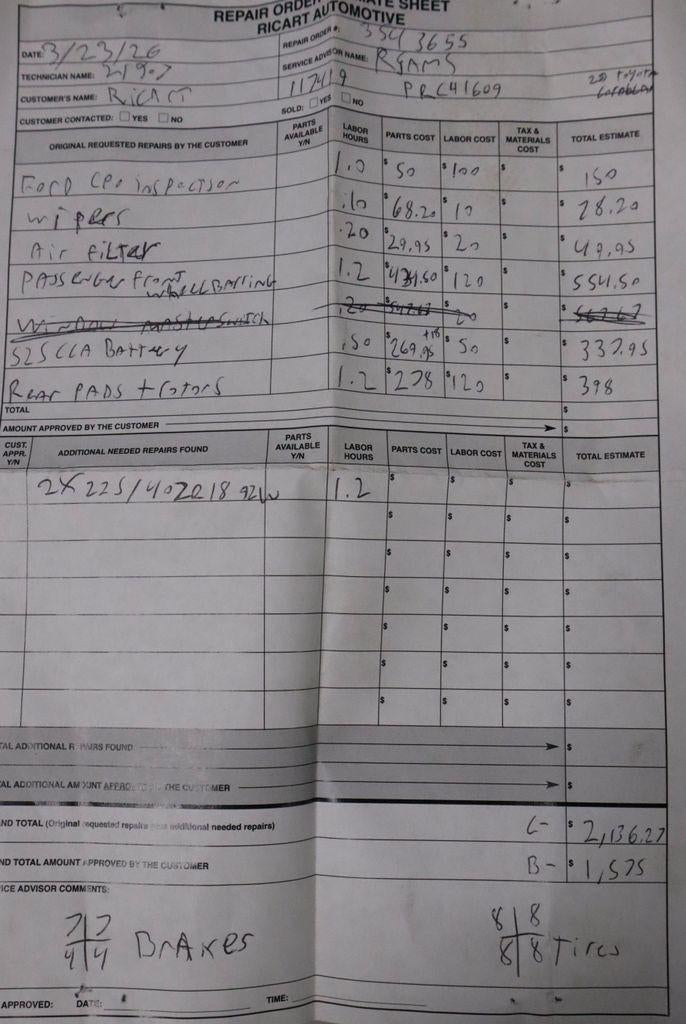 REPAIR ORDER SHEET
RICART AUTOMOTIVE
DATE: 3/23/26
REPAIR ORDER #: 3543655
TECHNICIAN NAME: 21907
SERVICE ADVISOR NAME: RGAMS
CUSTOMER'S NAME: RICART
117419 PRC41609 20 TOYOTA
CUSTOMER CONTACTED: YES NO SOLD: YES NO
ORIGINAL REQUESTED REPAIRS BY THE CUSTOMER PARTS AVAILABLE Y/N LABOR HOURS PARTS COST LABOR COST TAX & MATERIALS COST TOTAL ESTIMATE
Ford CPO inspection 1.0 $50 $100 $ $150
wipers .10 $68.20 $10 $ $78.20
Air FiLTer .20 $29.95 $20 $ $49.95
PASSenger Front wheel BArring 1.2 $434.50 $120 $ $554.50
Window MASTer Switch .20 $547.67 $20 $ $567.67
525 CCA BATTery .50 $269.95 +18 $50 $ $337.95
Rear PADS + rotors 1.2 $278 $120 $ $398
TOTAL $
AMOUNT APPROVED BY THE CUSTOMER $
CUST. APPR. Y/N ADDITIONAL NEEDED REPAIRS FOUND PARTS AVAILABLE Y/N LABOR HOURS PARTS COST LABOR COST TAX & MATERIALS COST TOTAL ESTIMATE
2X 225/40ZR18 92W 1.2 $ $ $ $
$ $ $ $
$ $ $ $
$ $ $ $
$ $ $ $
$ $ $ $
$ $ $ $
TAL ADDITIONAL REPAIRS FOUND $
TAL ADDITIONAL AMOUNT APPROVED BY THE CUSTOMER $
ND TOTAL (Original requested repairs plus additional needed repairs) C- $2,136.27
ND TOTAL AMOUNT APPROVED BY THE CUSTOMER B- $1,575
ICE ADVISOR COMMENTS:
7 7 8 8
4 4 BrAKes 8 8 Tires
APPROVED: DATE: TIME: